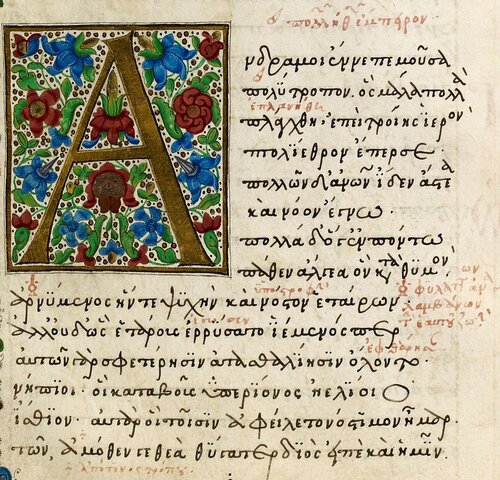 Ἄ
νδρα μοι ἔννεπε μοῦσα
πολύτροπον. ὃς μάλα πολλὰ
ἐπλανήθη
πλάγχθη. ἐπεὶ τροίης ἱερὸν
πτολίεθρον ἔπερσε.
πολλῶν δ' ἀνων ἴδεν ἄστεα
καὶ νόον ἔγνω.
πολλὰ δ' ὅγ' ἐν πόντω
πάθεν ἄλγεα ὃν κατὰ θυμὸν,
ἀρνύμενος ἥν τε ψυχὴν καὶ νόστον ἑταίρων.
ἀλλ' οὐδ' ὣς ἑτάρους ἐρρύσατο ἱέμενός περ.
αὐτῶν γὰρ σφετέρησιν ἀτασθαλίησιν ὄλοντο
νήπϊοι. οἳ κατὰ βοῦς ὑπερίονος ἠελίοιο
ἤσθιον. αὐτὰρ ὁ τοῖσιν ἀφείλετο νόστιμον ἦμαρ.
τῶν ἁμόθεν γε θεὰ θύγατερ διὸς εἰπὲ καὶ ἡμῖν.